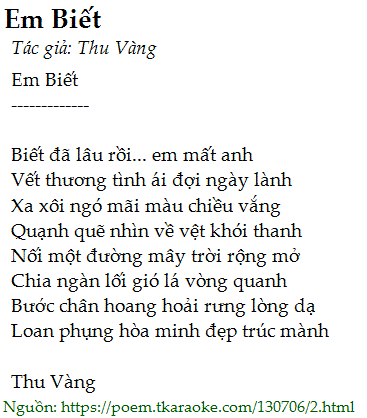 Em Biết
Tác giả: Thu Vàng
Em Biết
-------------
Biết đã lâu rồi... em mất anh
Vết thương tình ái đợi ngày lành
Xa xôi ngó mãi màu chiều vắng
Quạnh quẽ nhìn về vệt khói thanh
Nối một đường mây trời rộng mở
Chia ngàn lối gió lá vòng quanh
Bước chân hoang hoải rưng lòng dạ
Loan phụng hòa minh đẹp trúc mành
Thu Vàng
Nguồn: https://poem.tkaraoke.com/130706/2.html